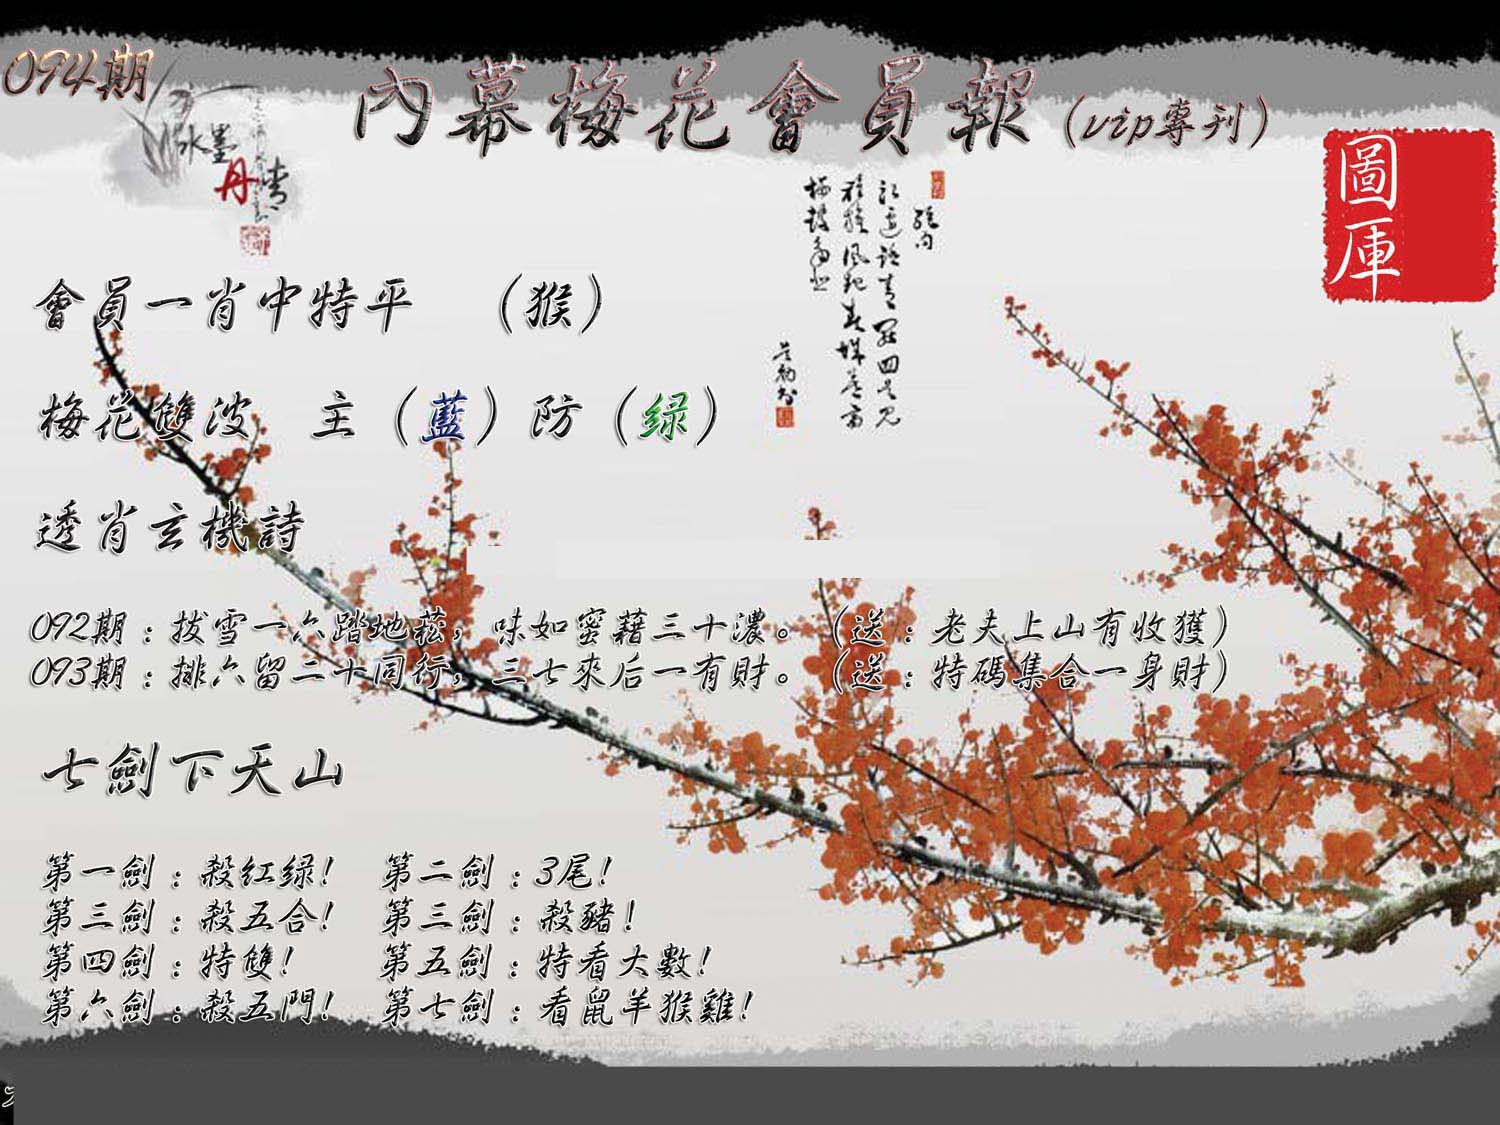 094期
內幕梅花會員報（vip專刊）
水墨
丹青
圖庫
會員一肖中特平 （猴）
梅花雙波 主（藍）防（绿）
透肖玄機詩
092期：拔雪一六踏地菘，味如蜜藉三十濃。（送：老夫上山有收獲）
093期：排六留二十同行，三七來后一有財。（送：特碼集合一身財）
七劍下天山
第一劍：殺紅绿！ 第二劍：3尾！
第三劍：殺五合！ 第三劍：殺豬！
第四劍：特雙！ 第五劍：特看大數！
第六劍：殺五門！ 第七劍：看鼠羊猴雞！